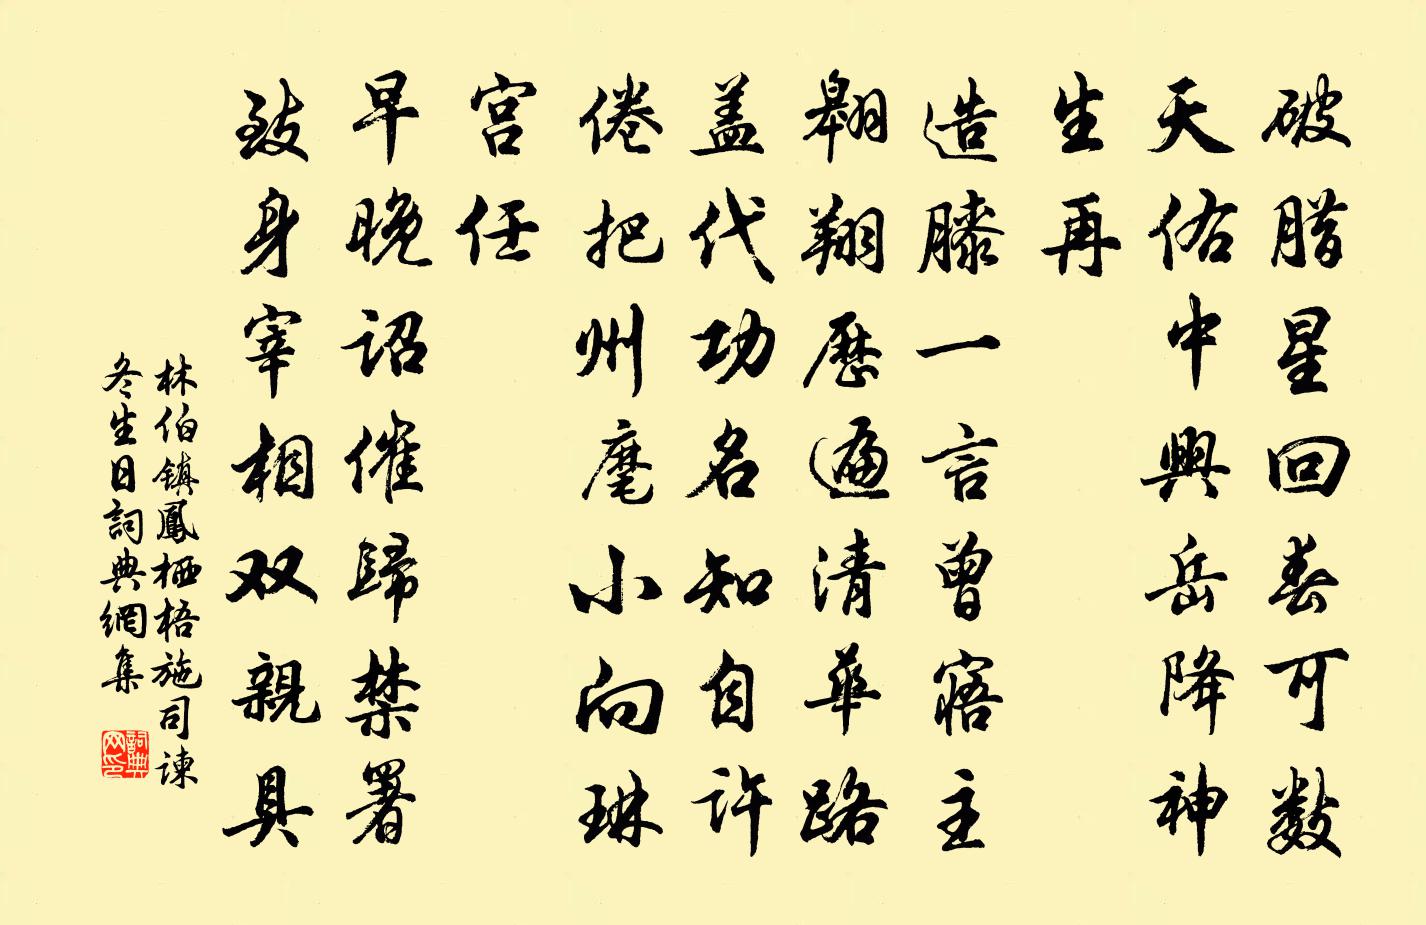 破腊星回春可数
天佑中興岳降神
生再
造膝一言曾寤主
翱翔歷遍清華路
盖代功名知自许
倦把州麾小向琳
宫任
早晚诏催歸禁署
致身宰相双親具
林伯鎮鳳栖梧施司諫
冬生日詞典網集
詞典网印